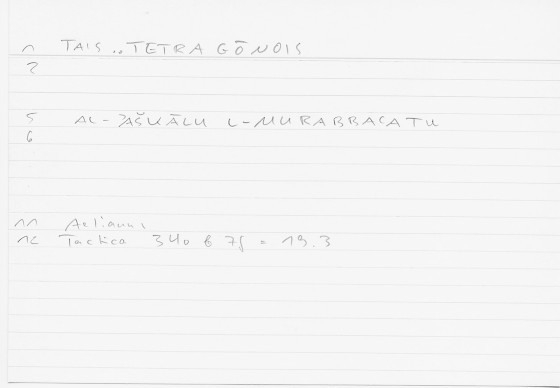 1 TAIS .. TETRAGŌNOIS
2
5 AL-ʾAŠKĀLU L-MURABBAʿATU
6
11 Aelianus
12 Tactica 340 b 75 = 19.3